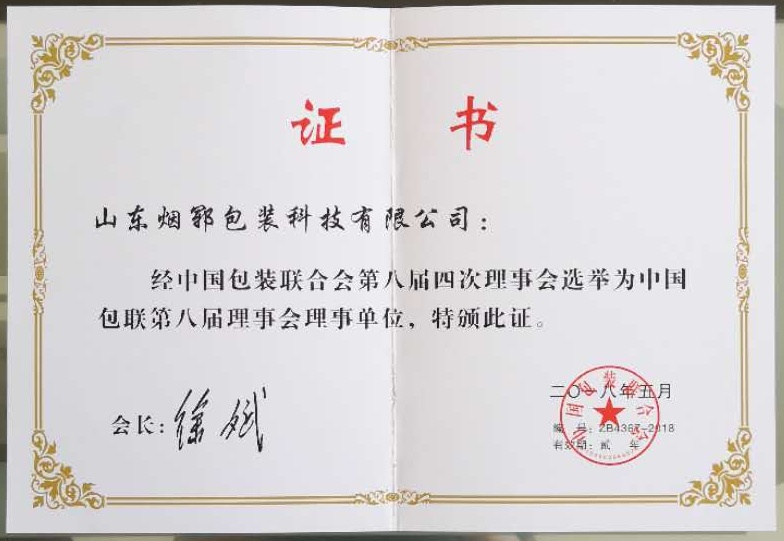 证 书
山东烟郓包装科技有限公司：
经中国包装联合会第八届四次理事会选举为中国
包联第八届理事会理事单位，特颁此证。
会长：徐斌
二〇一八年五月
编 号：ZB4367-2018
有效期：贰 年
中国包装联合会